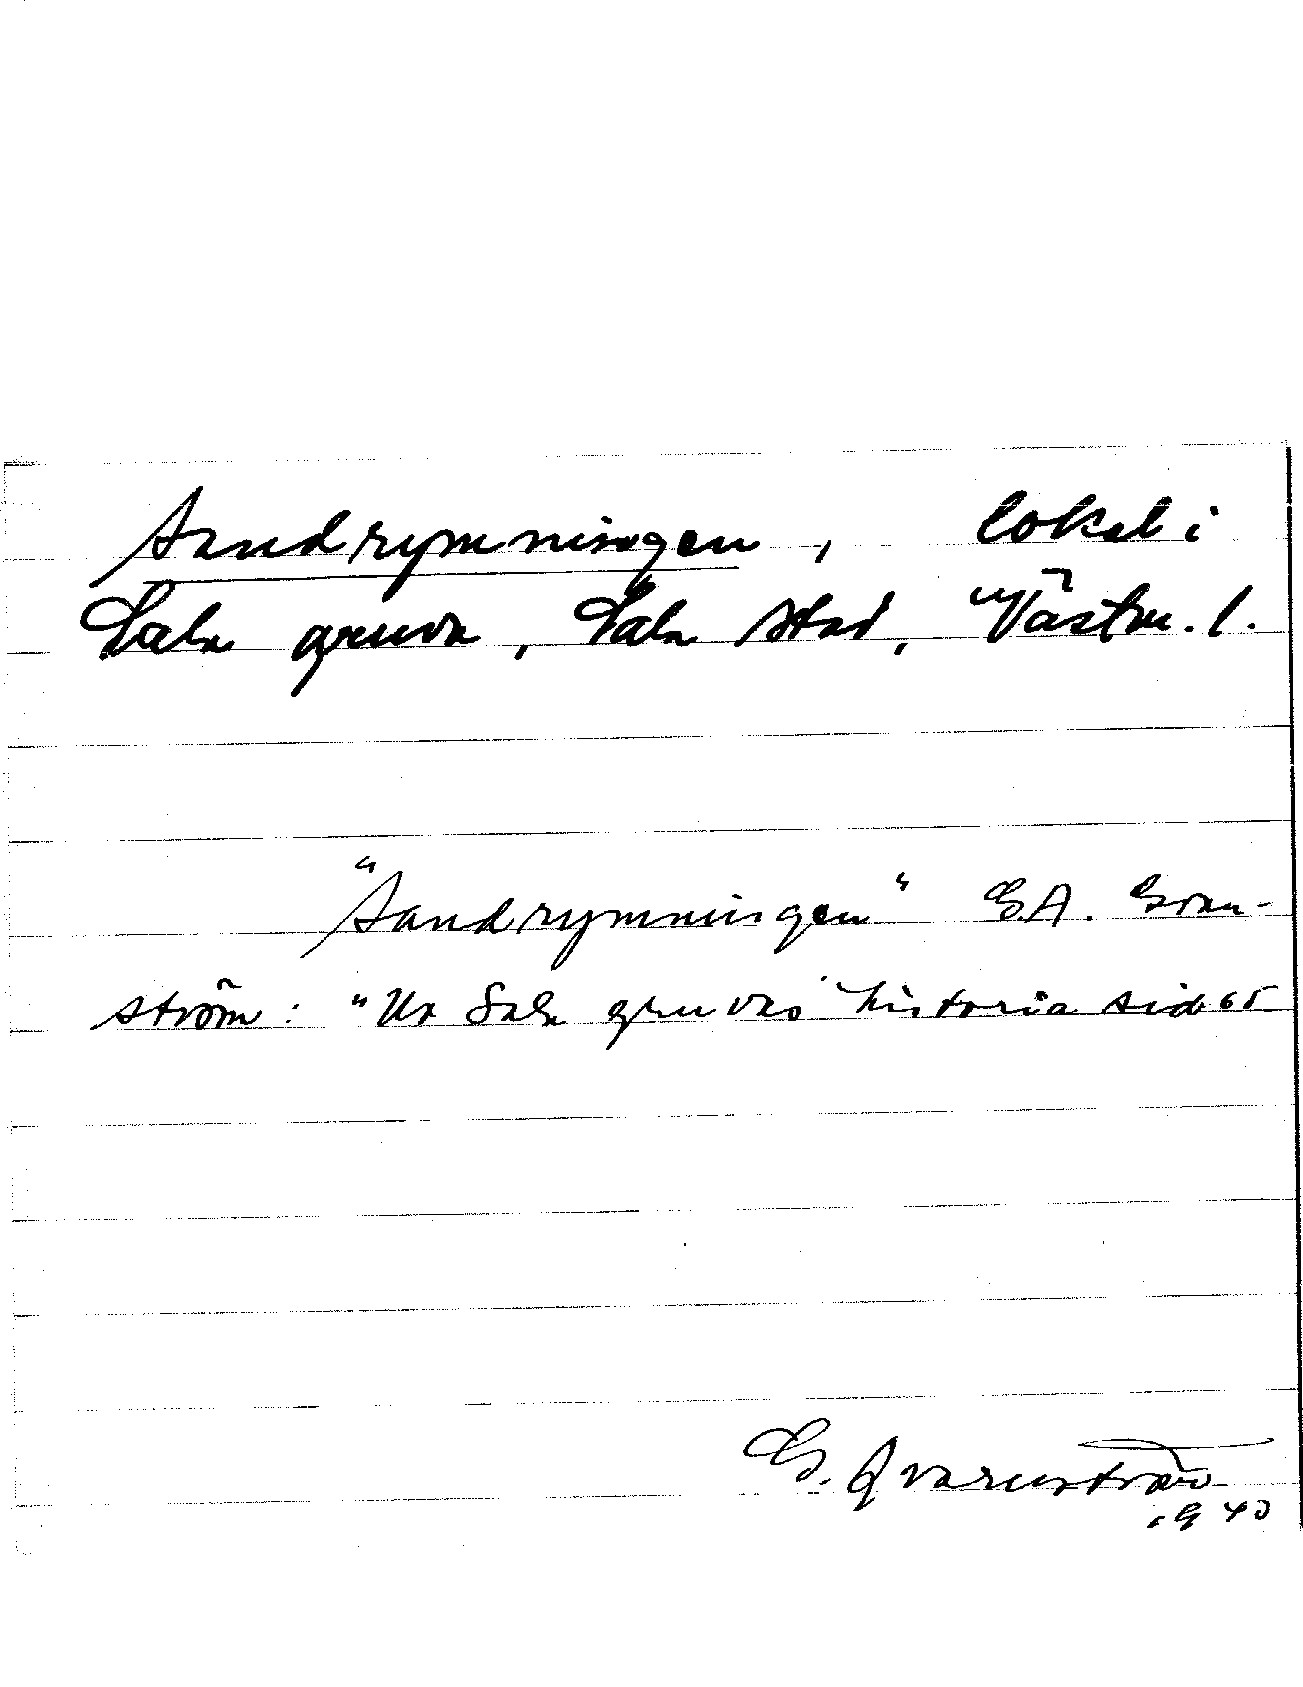 Sandrymningen, lokal i
Sala gruva, Sala stad, Västm. l.
"Sandrymningen" G.A. Gran-
ström: "Ur Sala gruvas historia sid 65
G. Qvarnström
1940